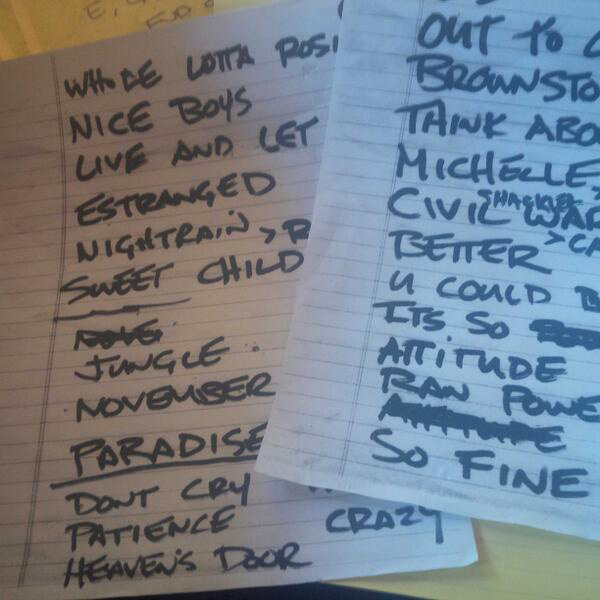 WHOLE LOTTA ROSI
NICE BOYS
LIVE AND LET
ESTRANGED
NIGHTRAIN > B
SWEET CHILD
JUNGLE
NOVEMBER
PARADISE
DONT CRY
PATIENCE CRAZY
HEAVEN'S DOOR
OUT TO
BROWNSTO
THINK ABO
MICHELLE
CIVIL WAR
BETTER > CA
U COULD B
ITS SO
ATTITUDE
RAW POWE
ATTITUDE
SO FINE